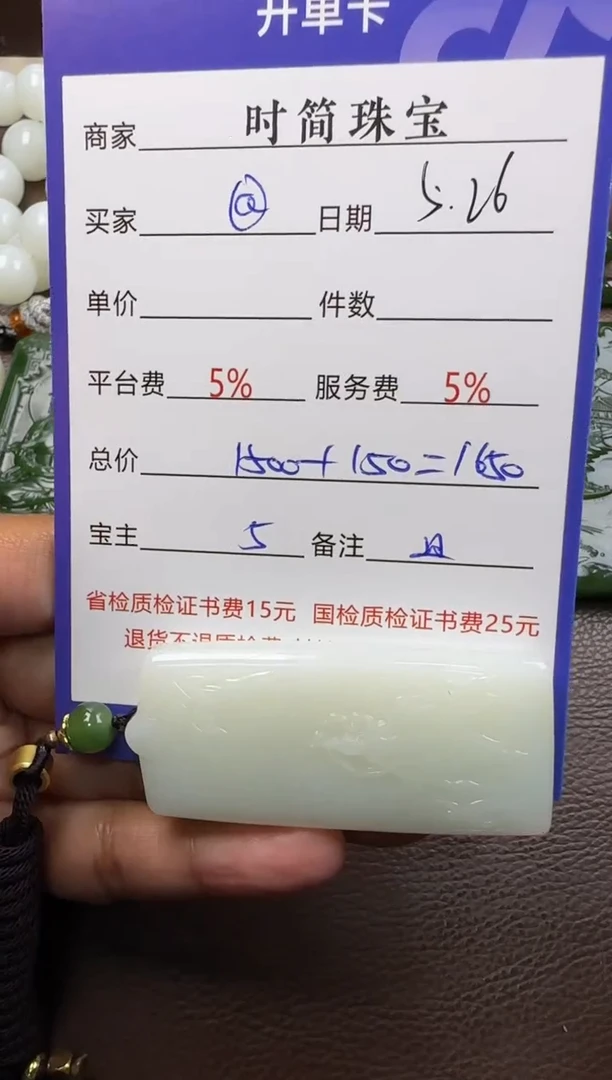 开单卡
商家 时简珠宝
买家 @ 日期 5.26
单价 件数
平台费 5% 服务费 5%
总价 1500+150=1650
宝主 5 备注
省检质检证书费15元 国检质检证书费25元
退货不退质检费